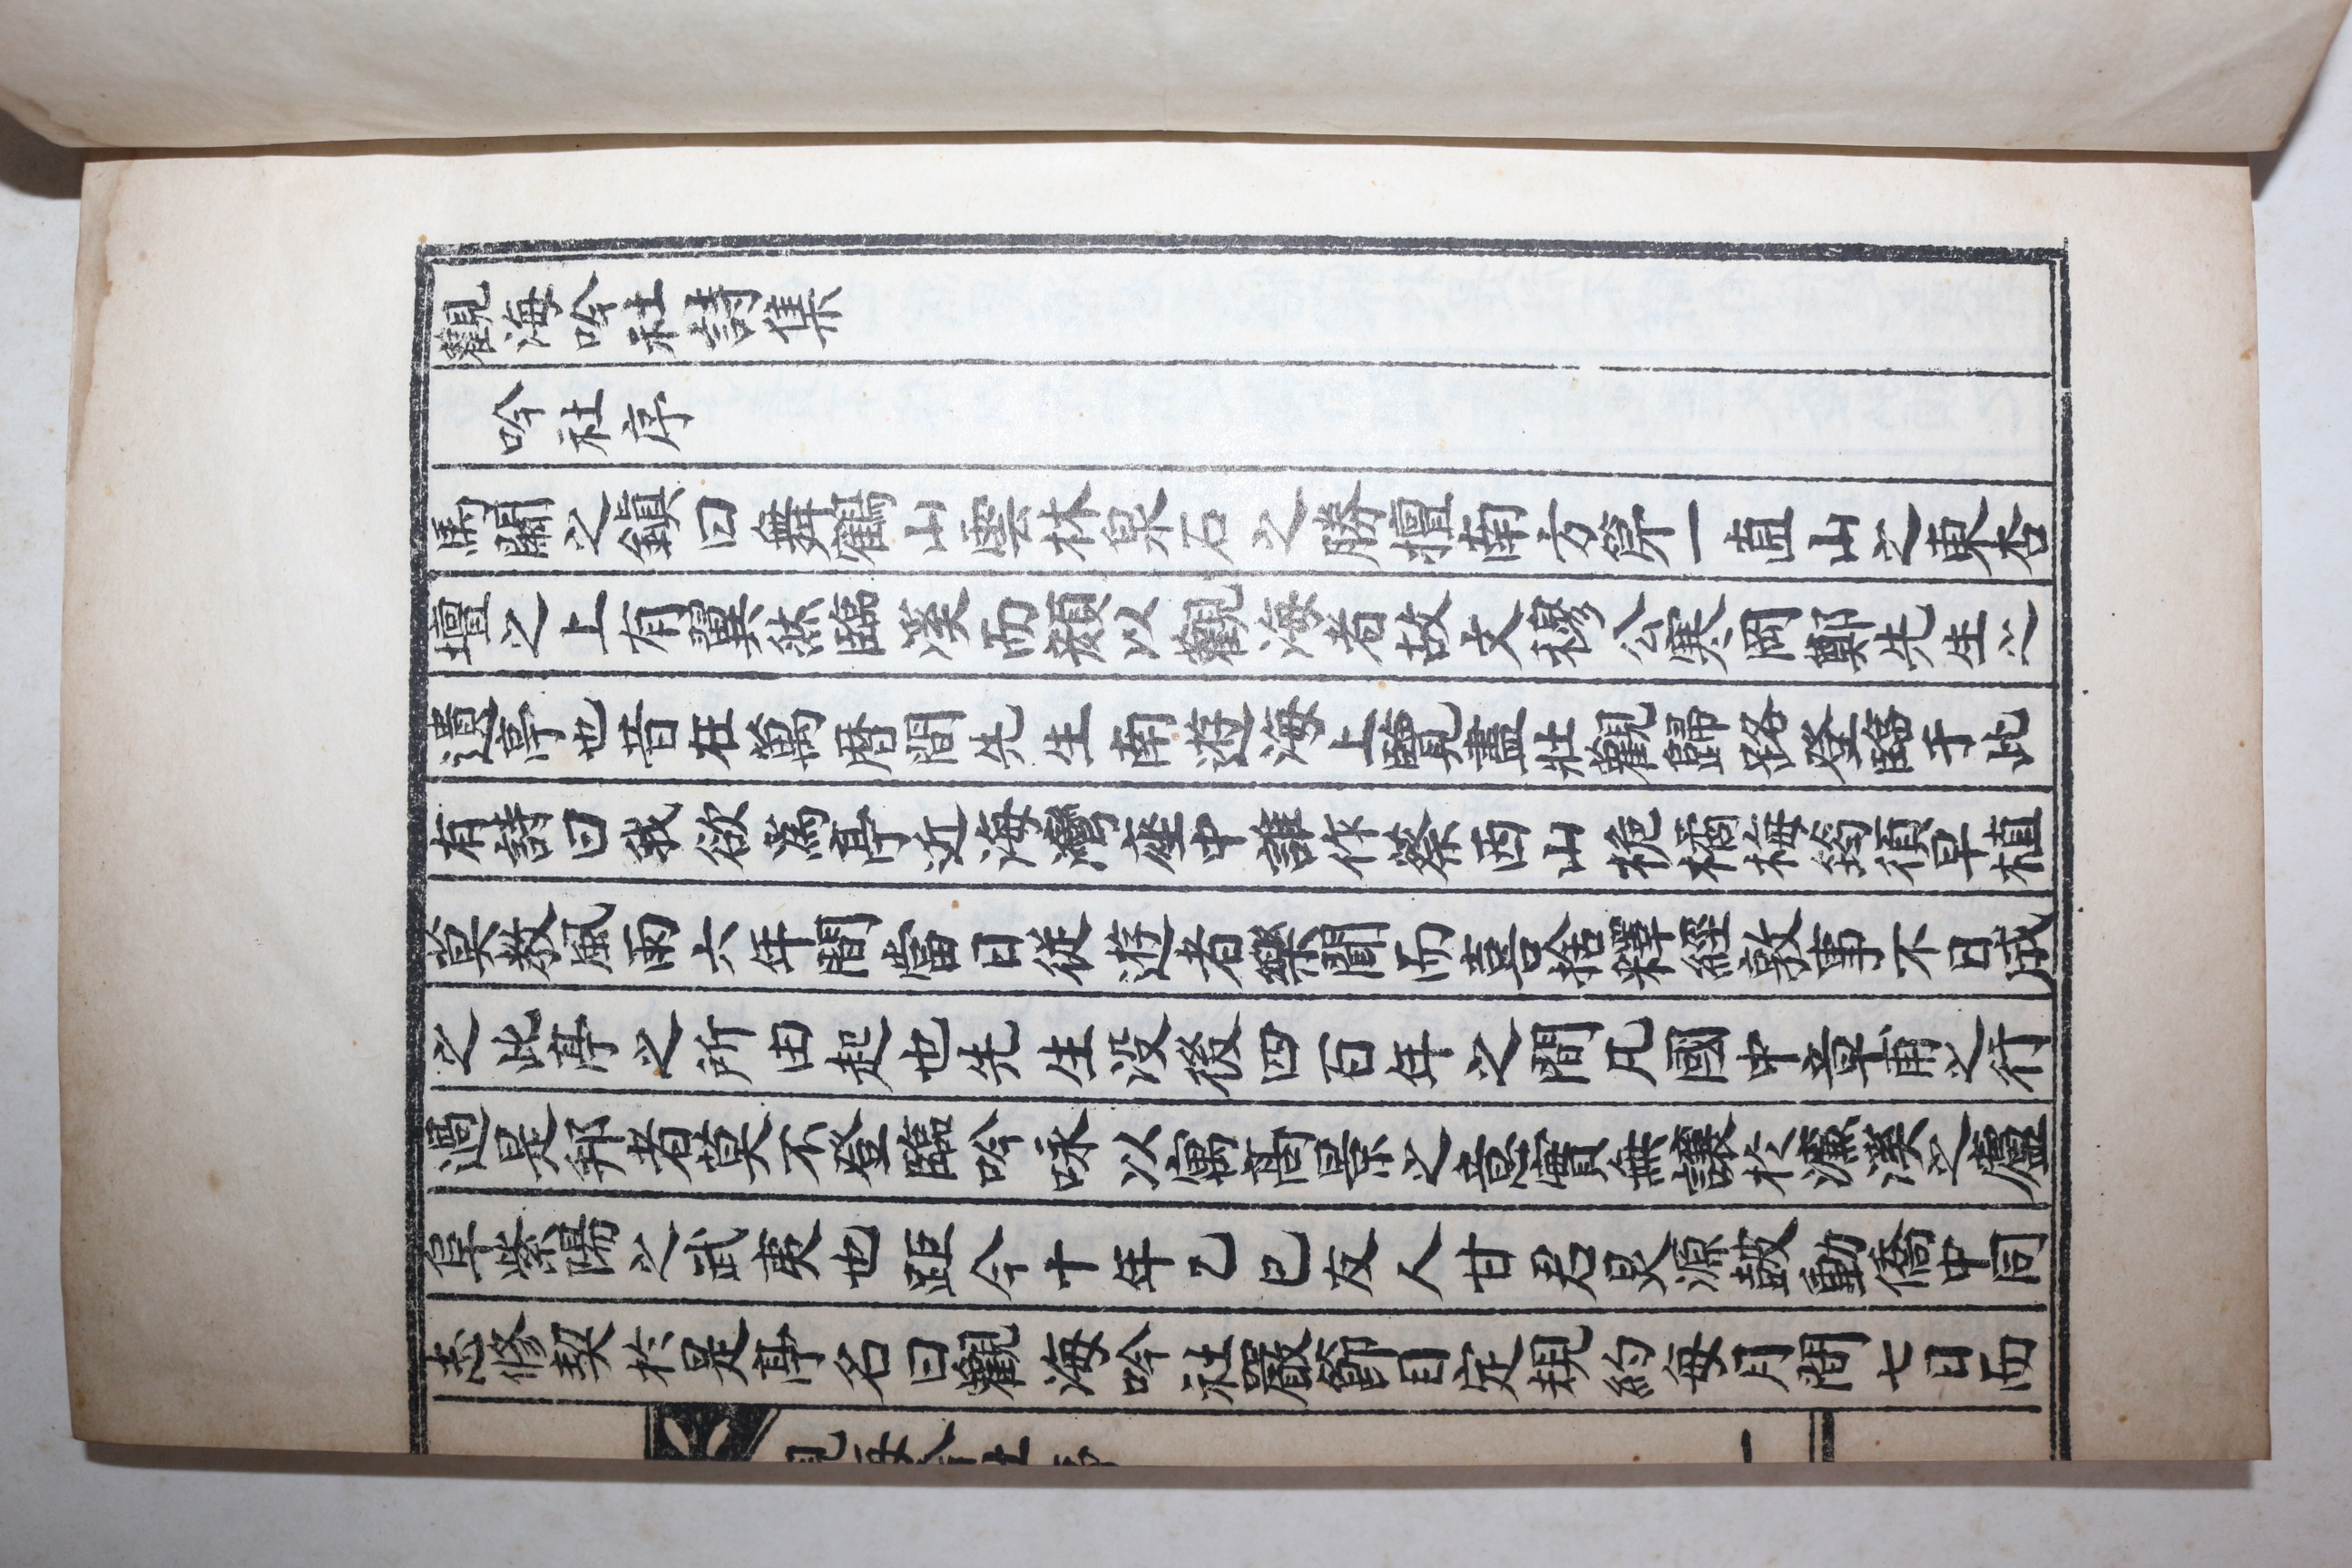 觀海吟社詩集
吟社序
馬關之鎭曰舞鶴山雲林泉石之勝擅南方第一直山之東杏
壇之上有翼然臨溪而顏以觀海者故文穆公寒岡鄭先生之
遺亭也昔在萬曆間先生南遊海上覽盡壯觀歸路登臨于此
有詩曰我欲爲亭近海灣座中誰作蔡西山梔橘梅筠須早植
莫敎風雨六年間當日從遊者樂聞而喜捨釋經敦事不日成
之此亭之所由起也先生沒後四百年之間凡國中章甫之行
過是邦者莫不登臨吟咏以寓高景之意實無讓於濂溪之廬
阜紫陽之武夷也距今十年乙巳友人甘君炅源鼓動僑中同
志修契於是亭名曰觀海吟社嚴節目定規約每月開七日而